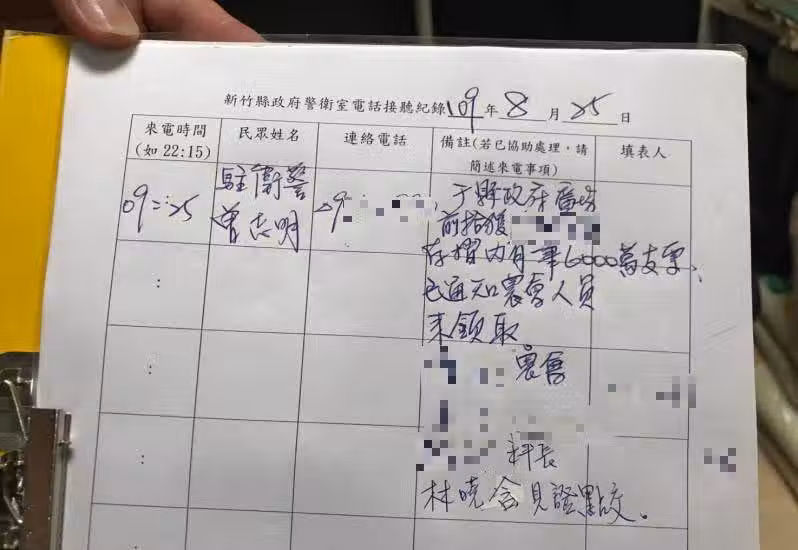 新竹縣政府警衛室電話接聽紀錄 109 年 8 月 25 日
來電時間
(如 22:15)
民眾姓名
連絡電話
備註(若已協助處理,請
簡述來電事項)
填表人
09:25
駐衛警
曾志明
09
于縣政府廣場
前拾獲
存摺內有一筆6000萬支票、
已通知農會人員
來領取。
農會
科長
林曉含見證點交。